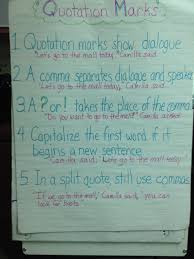 Quotation Marks
1 Quotation marks show dialogue
"Let's go to the mall today," Camilla said.
2 A comma separates dialogue and speaker
"Let's go to the mall today," Camilla said.
3 A ? or ! takes the place of the comma
"Do you want to go to the mall?" Camilla asked.
4 Capitalize the first word if it
begins a new sentence
Camilla said, "Let's go to the mall today."
5 In a split quote, still use commas
"If we go to the mall," Camilla said, "you can
look for